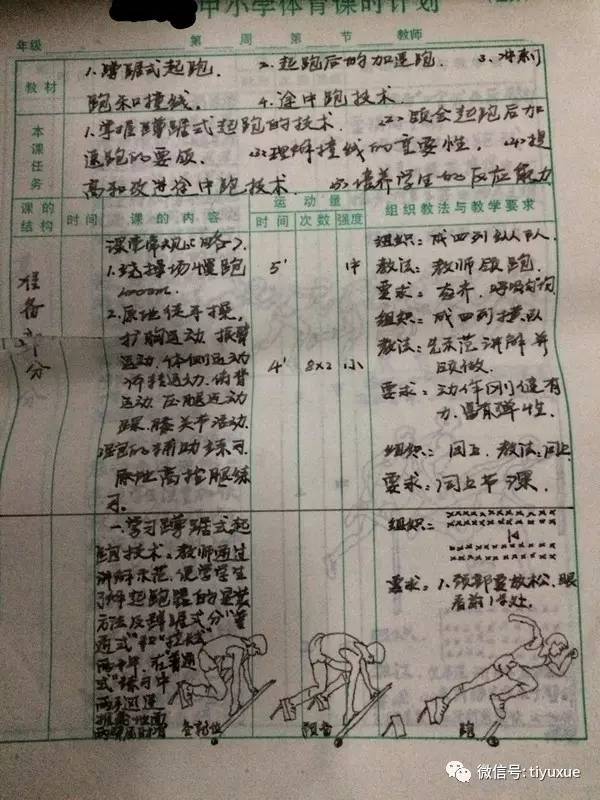 中小学体育课时计划
年级 第 周 第 节 教师
教材
1.蹲踞式起跑. 2.起跑后的加速跑. 3.冲刺
跑和撞线. 4.途中跑技术.
本课任务
1.掌握蹲踞式起跑的技术. (2)、领会起跑后加
速跑的要领. (3)理解撞线的重要性. (4)提
高和改进途中跑技术. (5)培养学生的反应能力
课的结构 时间 课的内容 运动量 组织教法与教学要求
时间 次数 强度
准备部分
课堂常规(略).
1.绕操场慢跑
1000m.
5' 中
2.原地徒手操,
扩胸运动.振臂
运动.体侧运动
体转运动.俯背
运动.压腿运动
踝.膝关节活动.
4' 8x2 小
跑的辅助练习.
原地高抬腿练
习.
组织:成四列纵队.
教法:教师领跑.
要求:看齐.呼吸均匀
组织:成四列横队
教法:先示范讲解并
领做.
要求:动作刚健有
力.富有弹性.
组织:同上.教法:同上
要求:同上节课.
一.学习蹲踞式起
跑技术.教师通过
讲解示范.使学生
了解起跑器的安装
方法及蹲踞式分"普
通式"和"拉长式"
两种.在"普通
式"练习中
组织:
要求:1.颈部要放松.眼
看前1m处.
各就位 预备 跑
微信号: tiyuxue